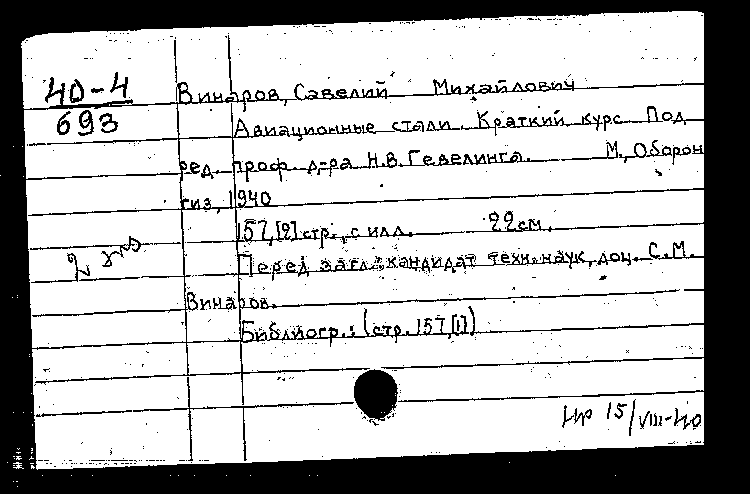 40-4
693
Винаров, Савелий Михайлович
Авиационные стали. Краткий курс Под
ред. проф. д-ра Н.В. Гевелинга. М., Оборон
гиз, 1940
157,[2] стр., с илл. 22 см.
2 экз
Перед загл.: кандидат техн. наук, доц. С.М.
Винаров.
Библиогр.: (стр. 157,[1])
15/VIII-40